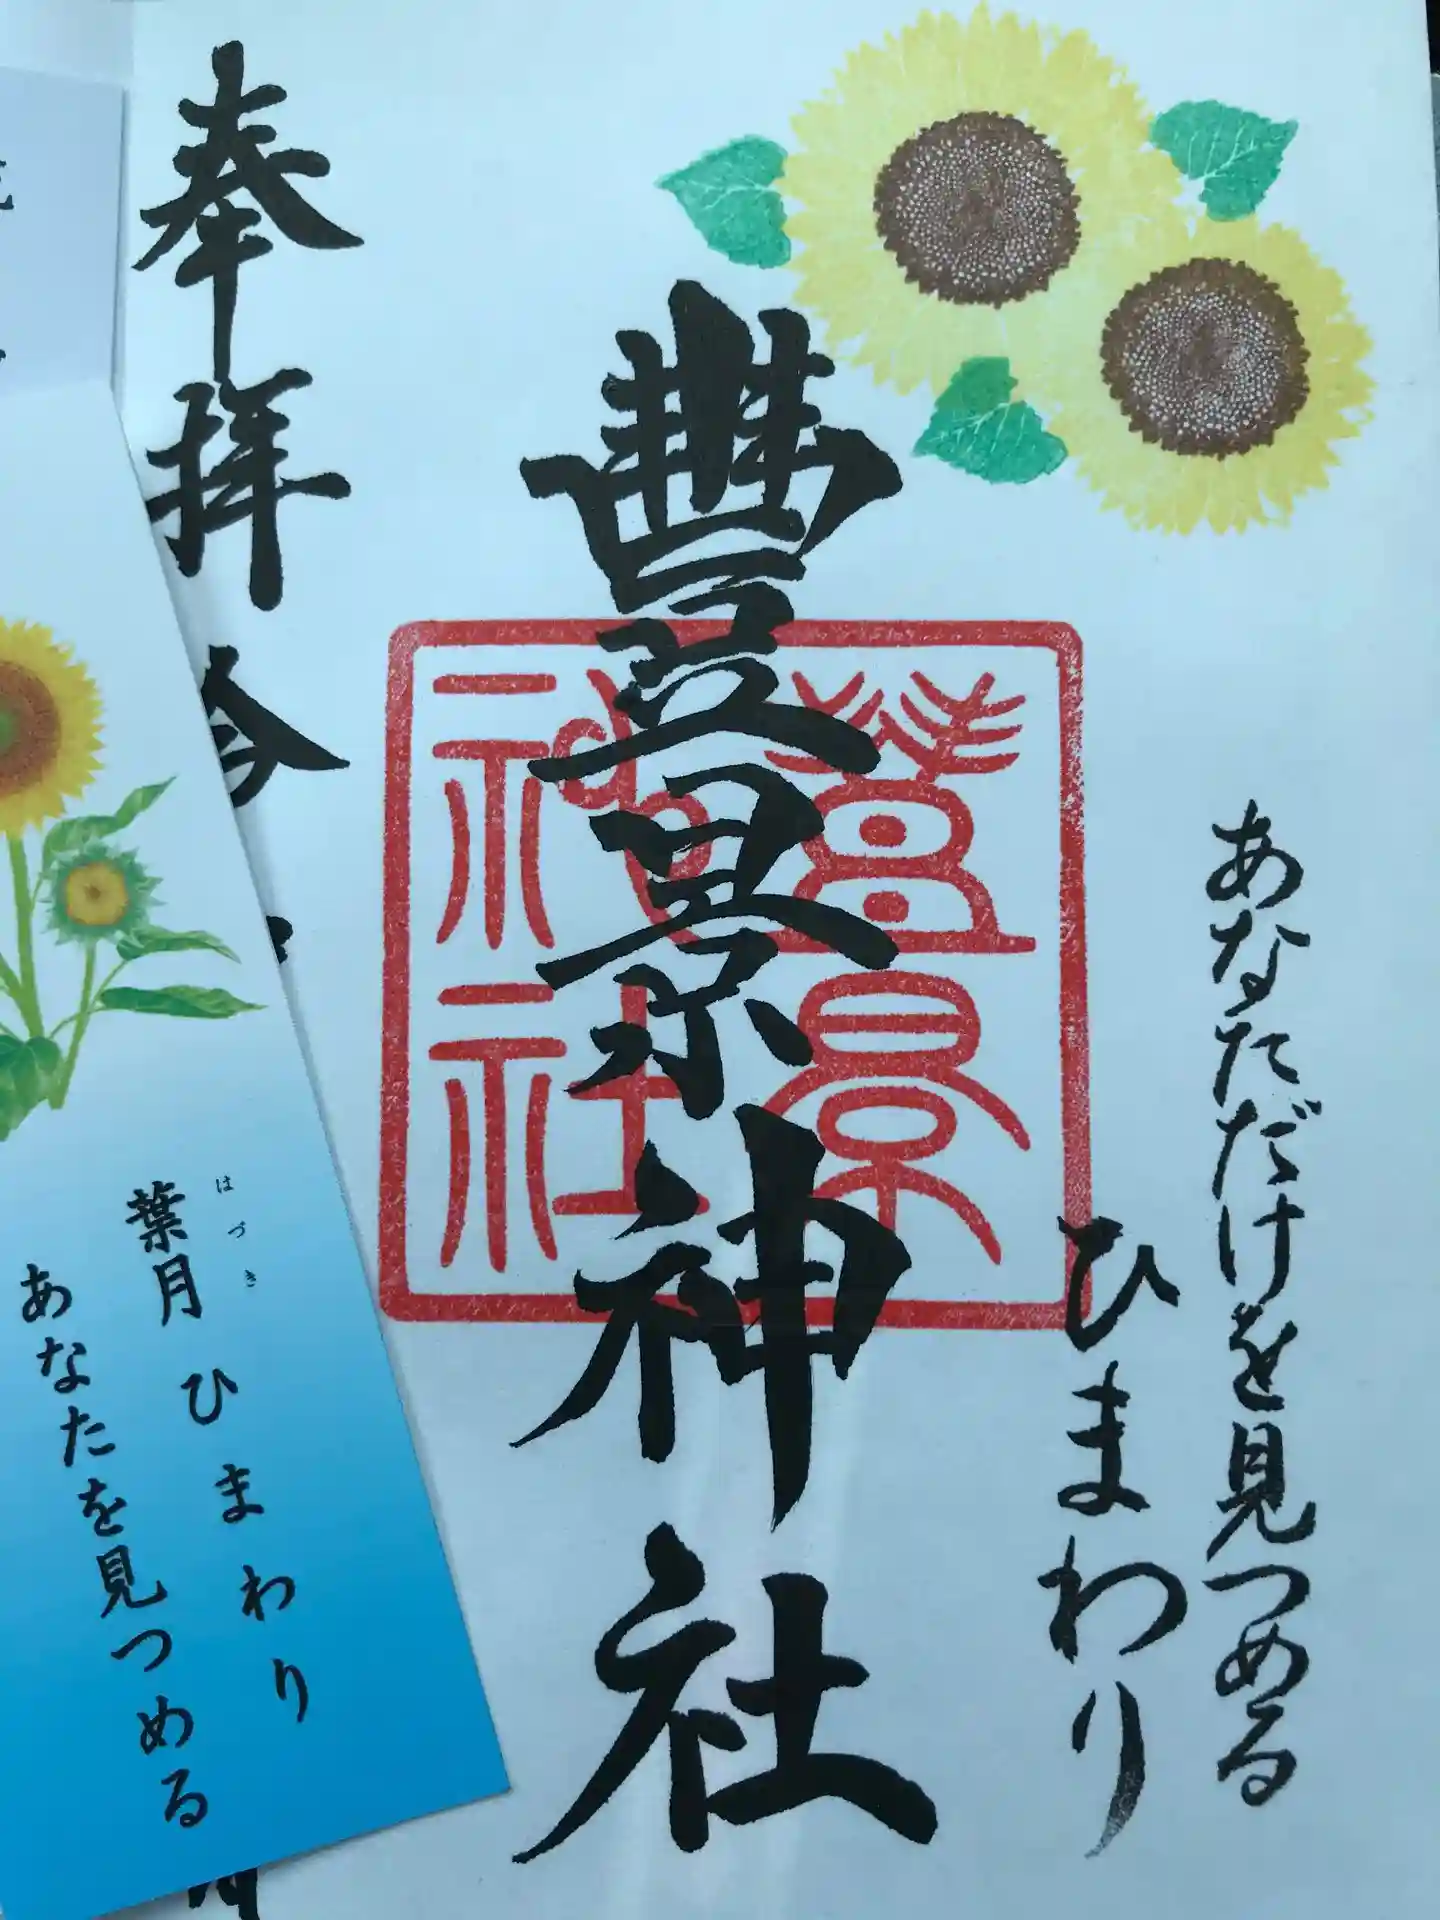 あなただけを見つめる
ひまわり
豊景神社
豊景神社
奉拝
令
はづき
葉月 ひまわり
あなたを見つめる